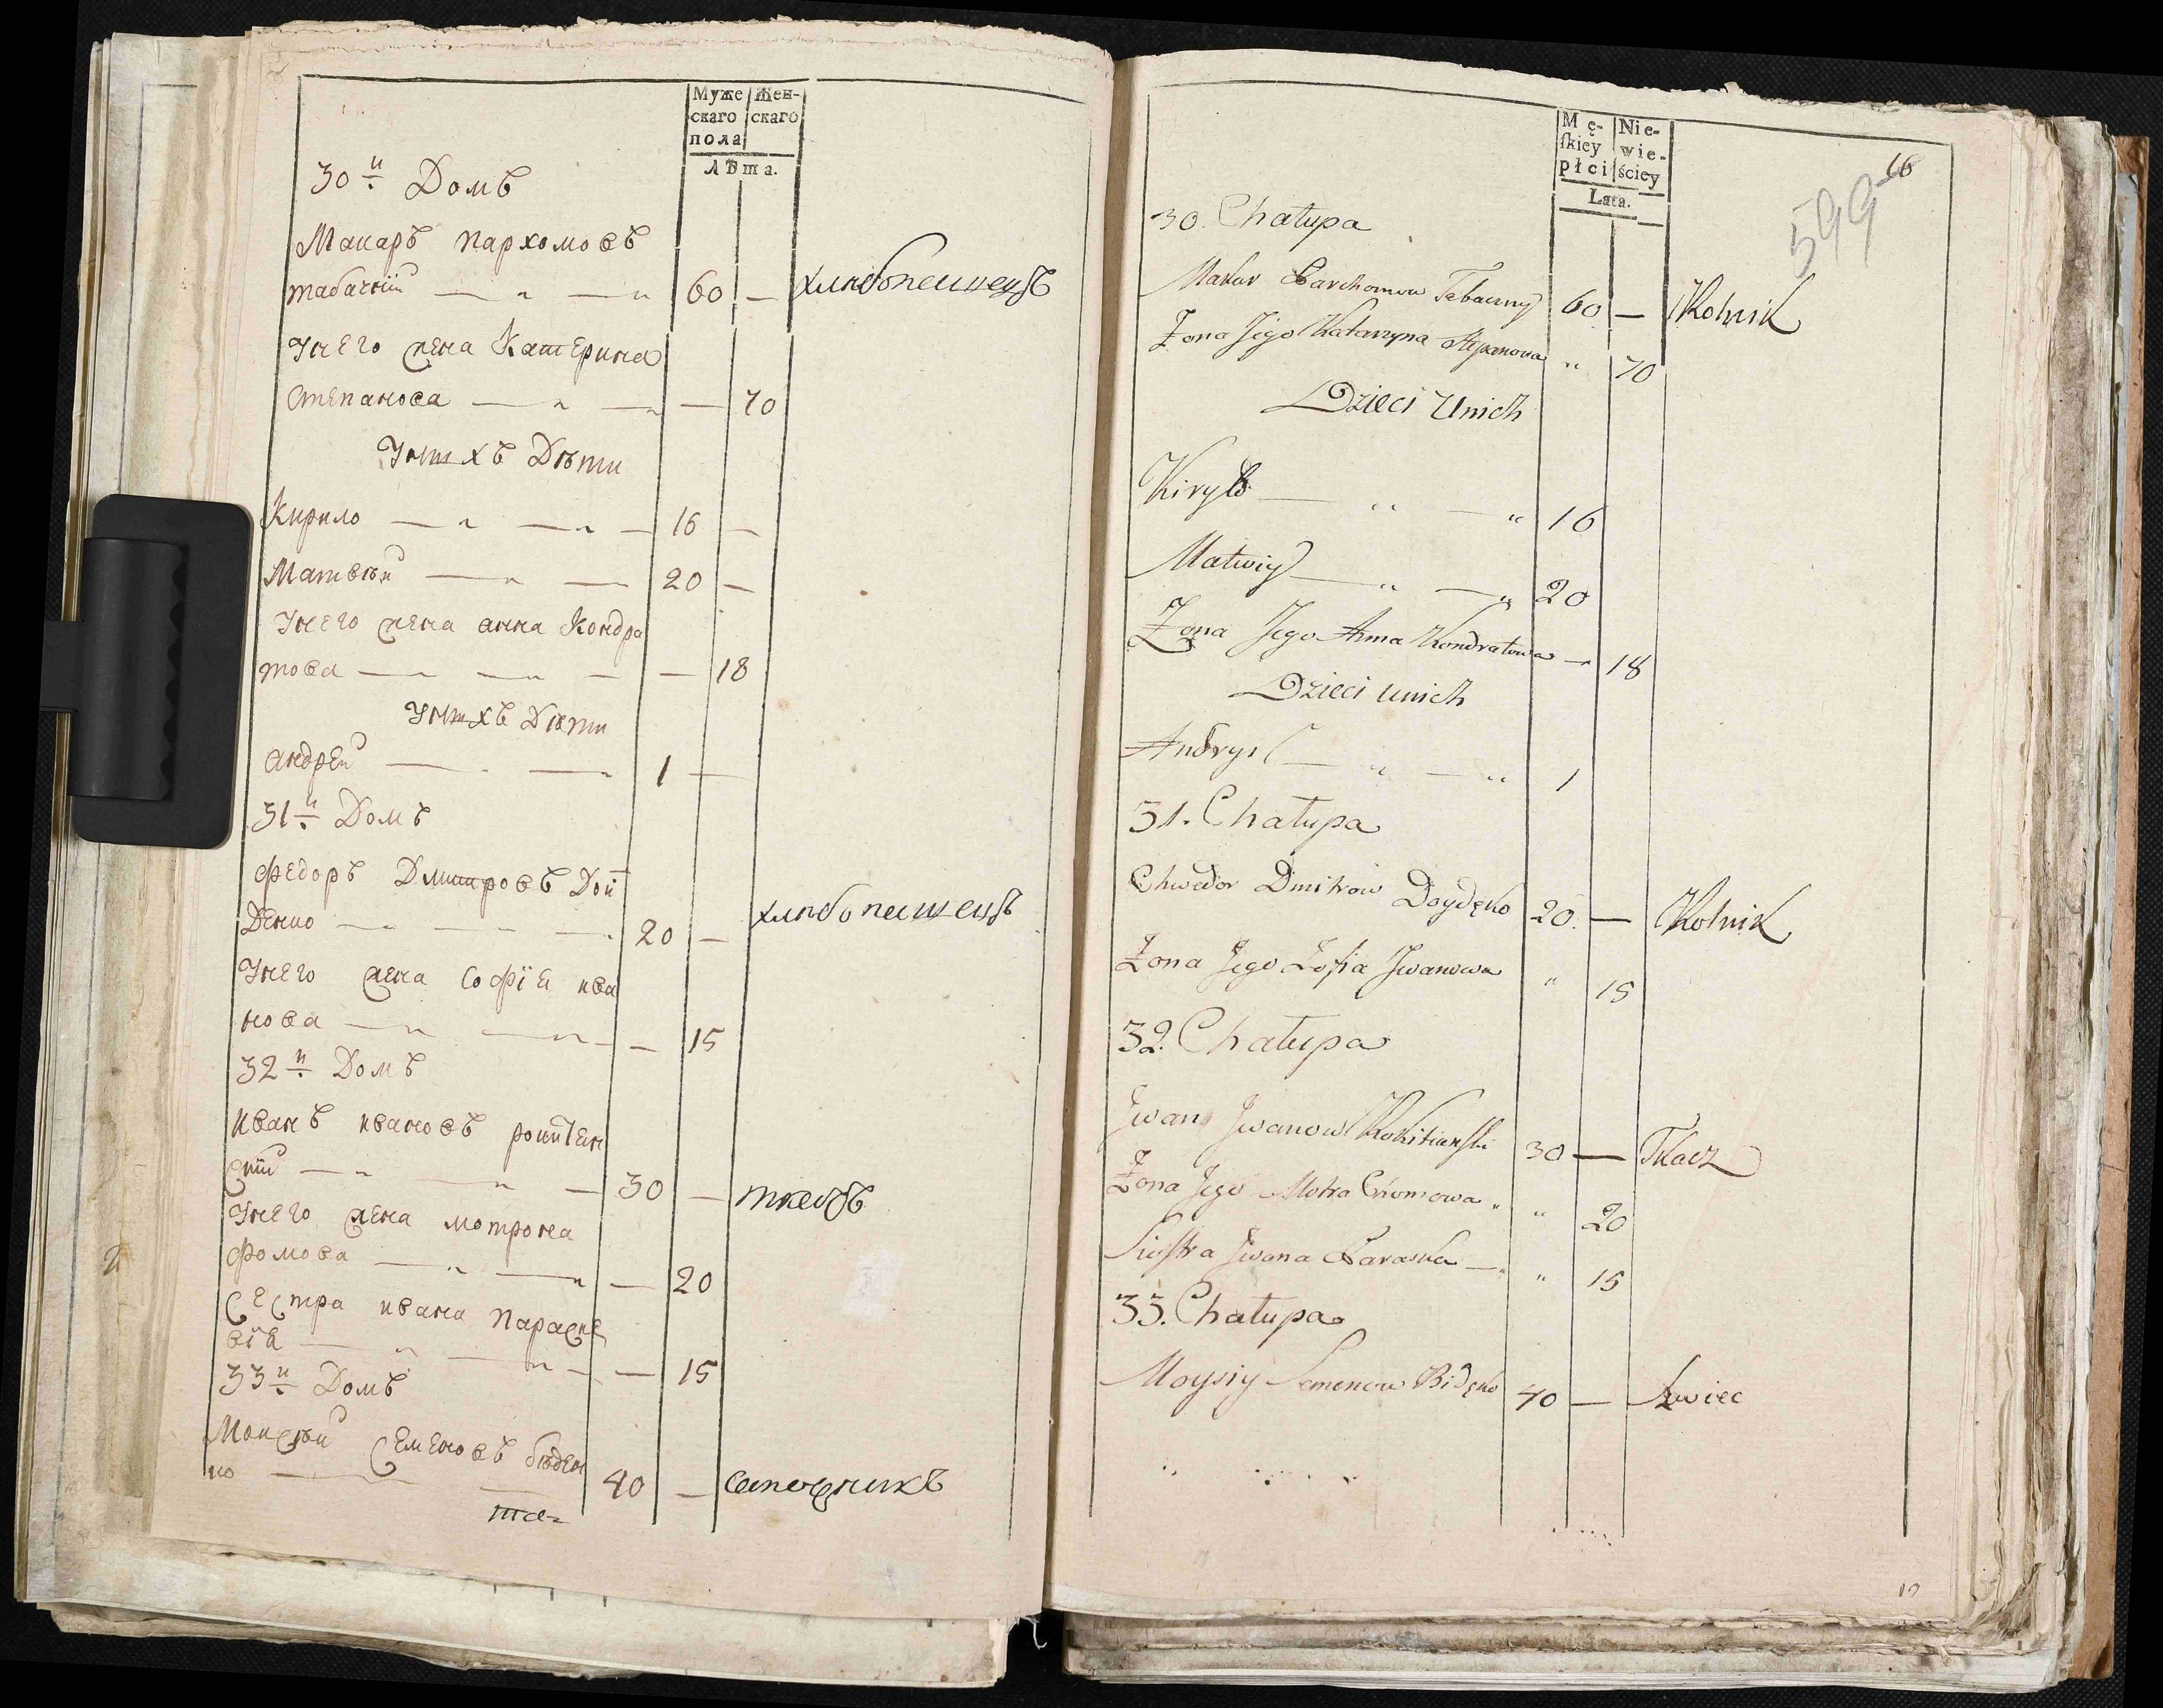 Муже Жен-
скаго скаго
пола
Лѣта.
30й Домъ
Макаръ пархомовъ
табачнїй — „ — „ 60 — хлибопашецъ
Унего жена Катерина
Степанова — „ — „ — 70
Унихъ Дѣти
Кирило — „ — „ — 16 —
Матвѣй — „ — 20 —
Унего жена анна Кондра
това — „ — „ — — 18
Унихъ Дѣти
андрей — „ — „ 1 —
31й Домъ
федоръ Дмитровъ Дой
Денко — „ — „ — 20 — хлибопашецъ
Унего жена Софїя ива
нова — „ — „ — 15
32й Домъ
иванъ ивановъ рокитян
скїй — „ — „ — 30 — ткачъ
Унего жена мотрона
фомова — „ — „ — 20
Сестра ивана параске
вїя — „ — „ — — 15
33й Домъ
Моисѣй Семеновъ бѣден
ко — — 40 — сапожникъ
Mę- Nie-
ſkiey wie-
płci ściey
Lata.
16
599
30. Chałupa
Makar Parchomow Tabaczny 60 — Rolnik
Żona Jego Katarzyna Stepanowa „ 70
Dzieci Unich
Kiryło — „ — „ 16
Matwiy — „ — „ 20
Żona Jego Anna Kondratowa — 18
Dzieci unich
Andryi — „ — „ 1
31. Chałupa
Chwedor Dmitrow Doydęko 20. — Rolnik
Żona Jego Zofia Jwanowa „ 15
32. Chałupa
Jwan Jwanow Rokitianſki 30 — Tkacz
Żona Jego Motra Chomowa „ „ 20
Siostra Jwana Paraska — „ „ 15
33. Chałupa
Moysiy Semenow Bidęko 40 — Szwiec